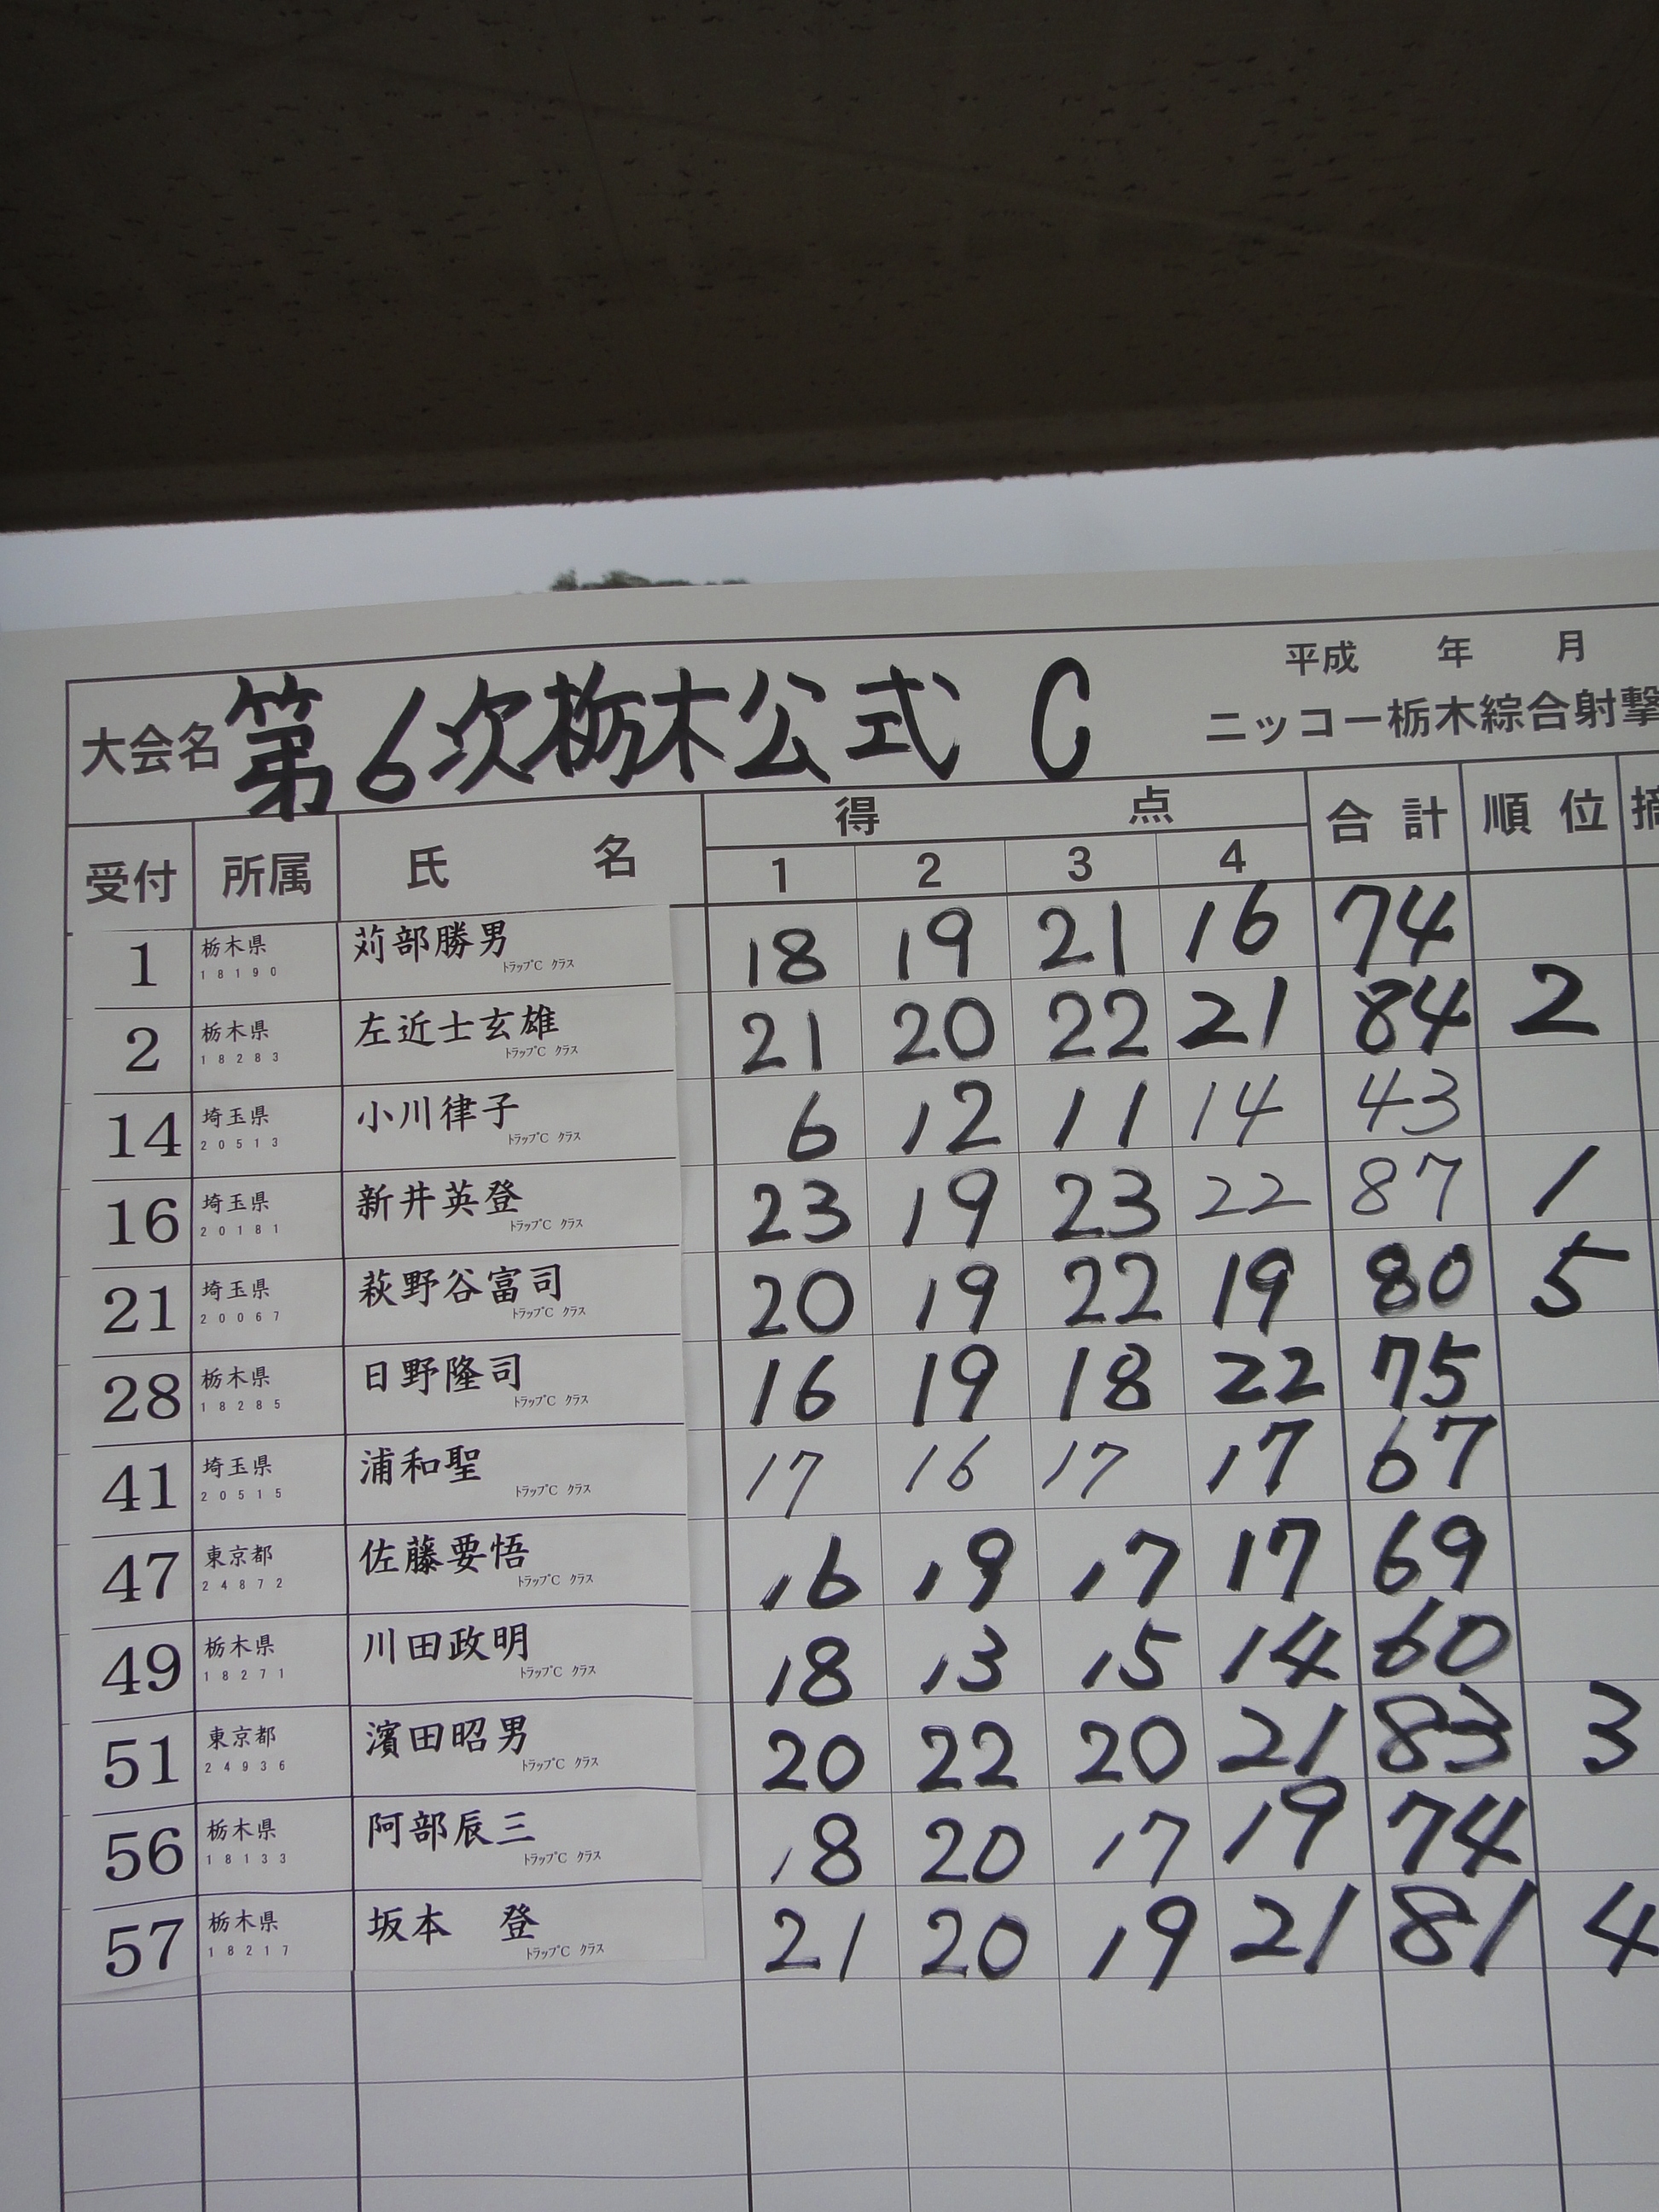 平成 年 月
大会名 第6次栃木公式 C ニッコー栃木綜合射撃
受付 所属 氏 名 得 点 合計 順位 摘
1 2 3 4
1 栃木県 18190 苅部勝男 トラップC クラス 18 19 21 16 74
2 栃木県 18283 左近士玄雄 トラップC クラス 21 20 22 21 84 2
14 埼玉県 20513 小川律子 トラップC クラス 6 12 11 14 43
16 埼玉県 20181 新井英登 トラップC クラス 23 19 23 22 87 1
21 埼玉県 20067 萩野谷富司 トラップC クラス 20 19 22 19 80 5
28 栃木県 18285 日野隆司 トラップC クラス 16 19 18 22 75
41 埼玉県 20515 浦和聖 トラップC クラス 17 16 17 17 67
47 東京都 24872 佐藤要悟 トラップC クラス 16 19 17 17 69
49 栃木県 18271 川田政明 トラップC クラス 18 13 15 14 60
51 東京都 24936 濱田昭男 トラップC クラス 20 22 20 21 83 3
56 栃木県 18133 阿部辰三 トラップC クラス 18 20 17 19 74
57 栃木県 18217 坂本 登 トラップC クラス 21 20 19 21 81 4